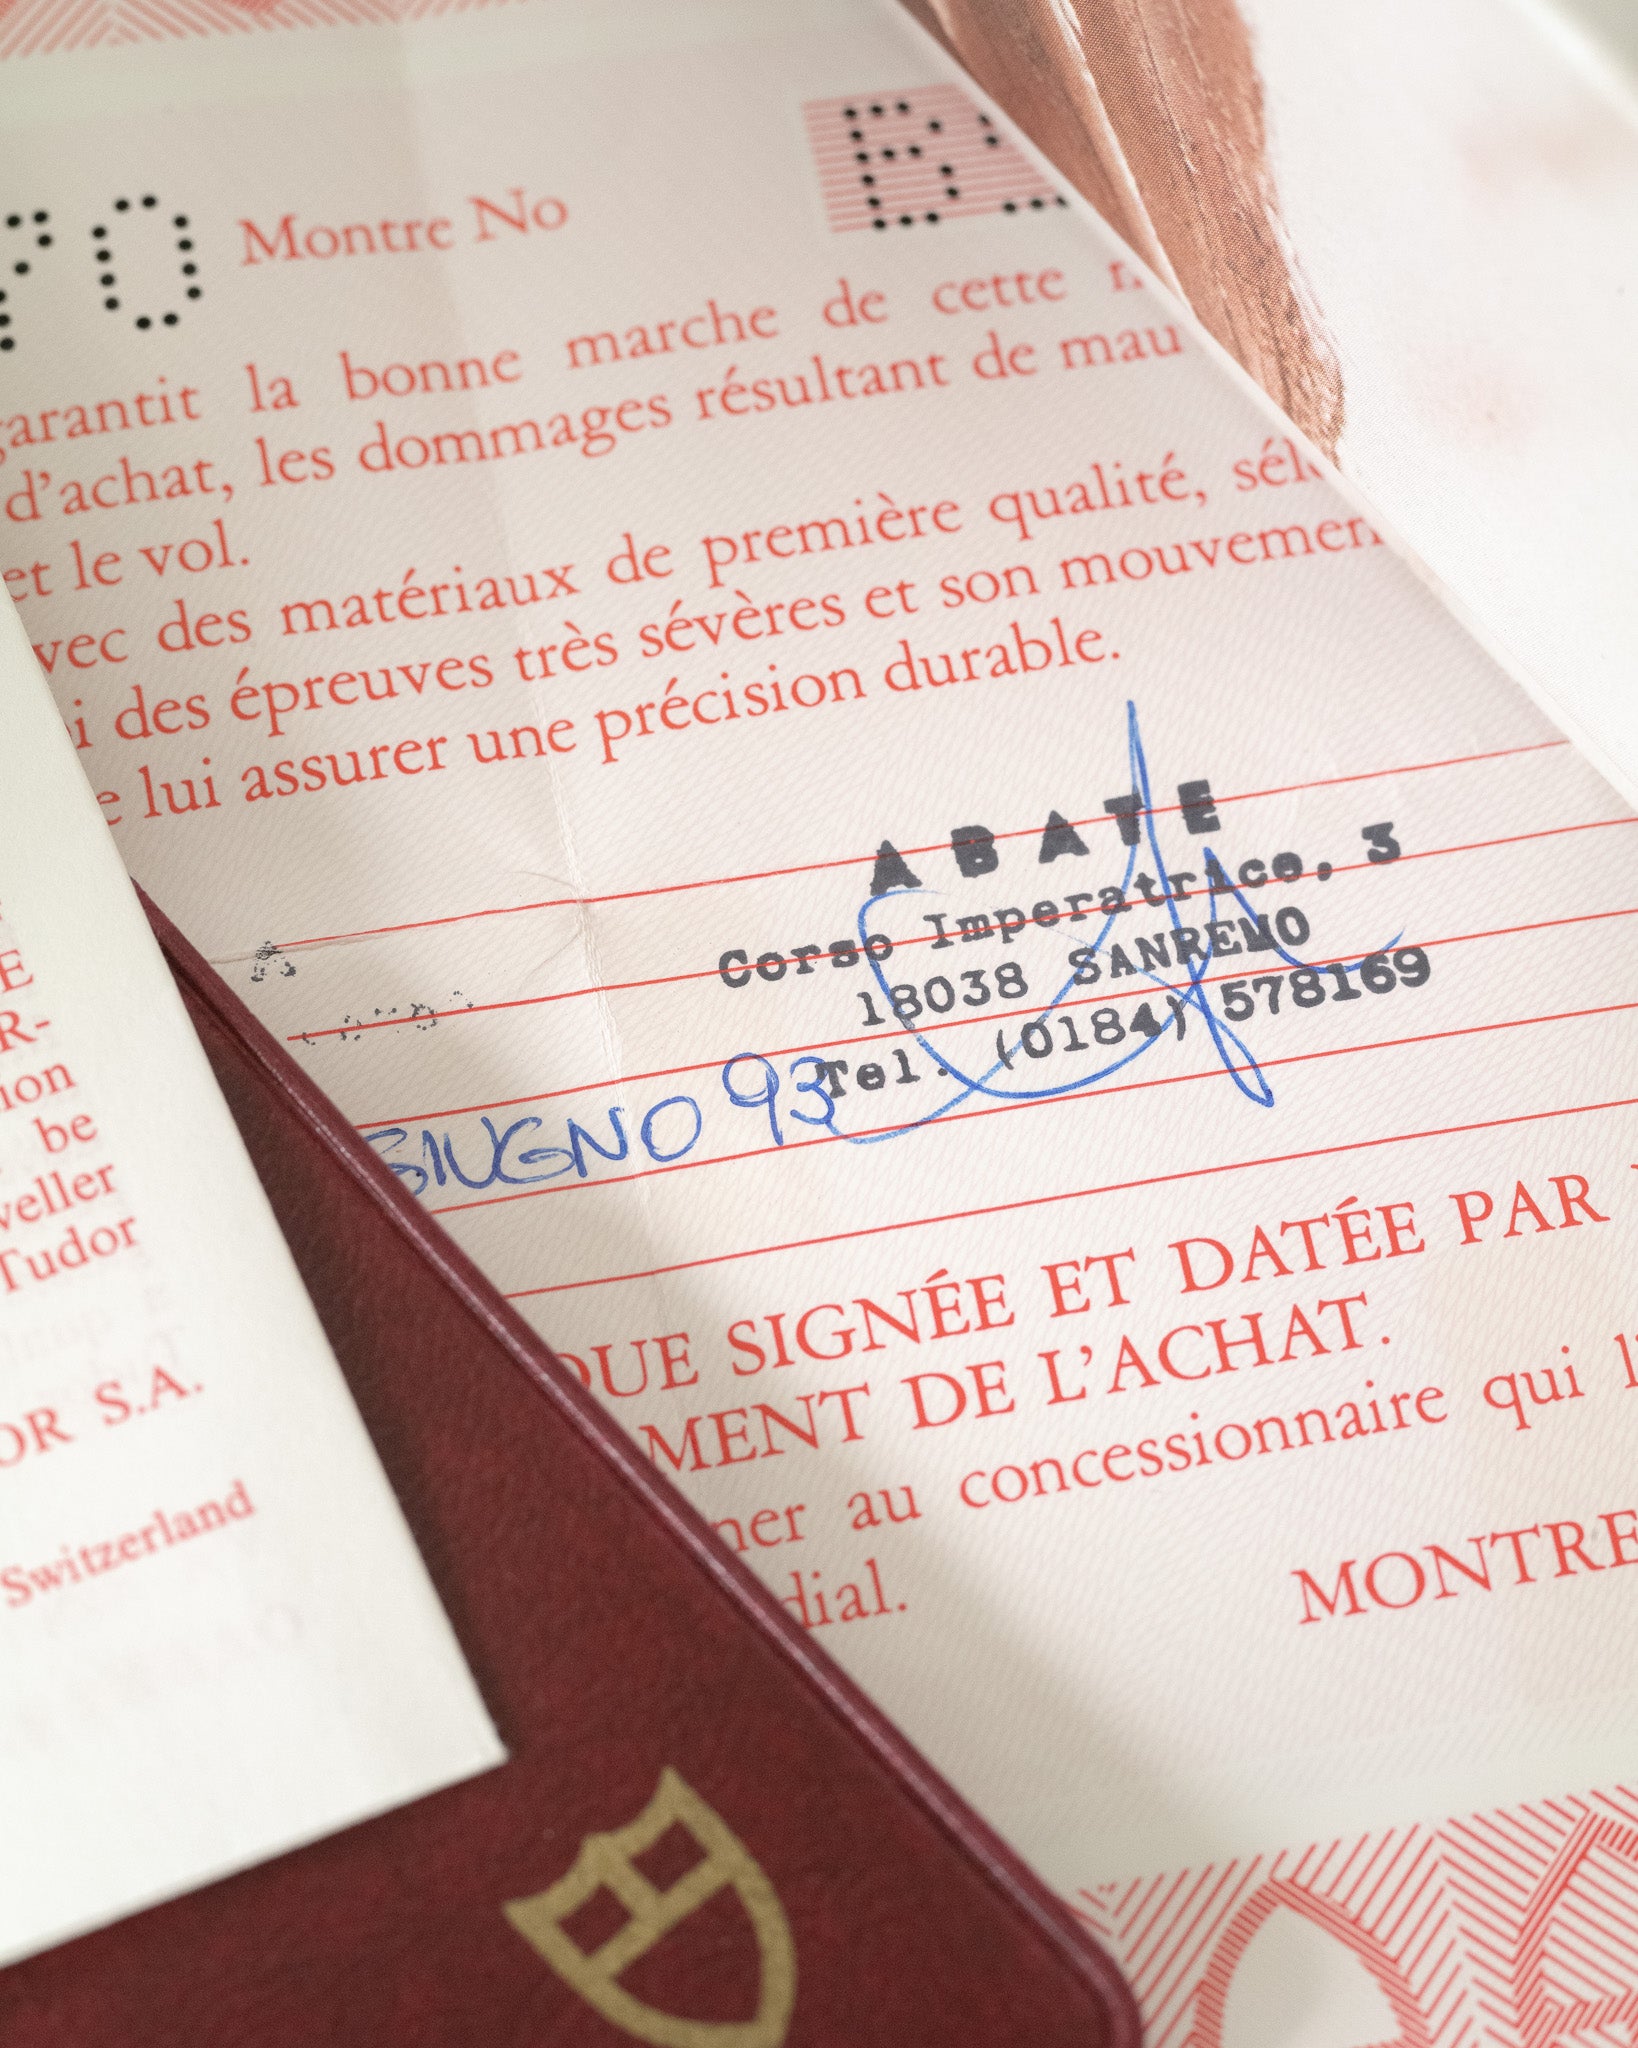 Montre No
garantit la bonne marche de cette
d'achat, les dommages résultant de mau
et le vol.
avec des matériaux de première qualité,
des épreuves très sévères et son mouvemen
lui assurer une précision durable.
ABATE
Corso Imperatrice, 3
18038 SANREMO
Tel. (0184) 578169
GIUGNO 93
QUE SIGNÉE ET DATÉE PAR
MENT DE L'ACHAT.
ner au concessionnaire qui l'
dial.
MONTRE
E
R-
ion
be
weller
Tudor
OR S.A.
Switzerland